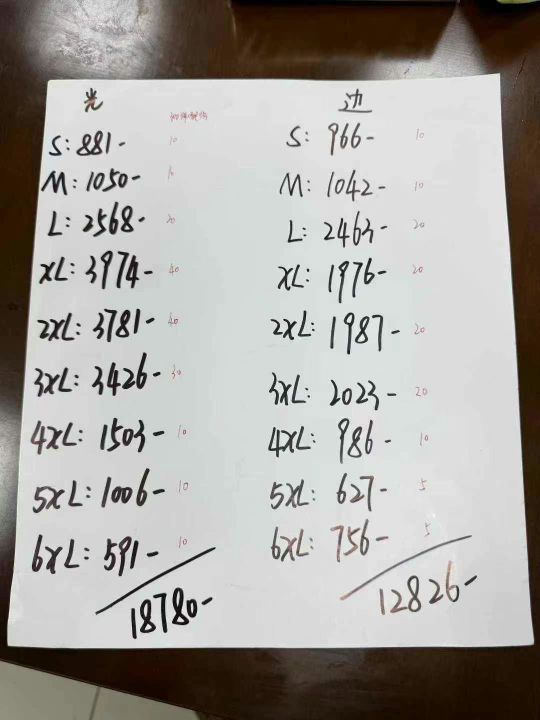 光
S: 881- 10
M: 1050- 10
L: 2568- 20
XL: 3974- 40
2XL: 3781- 40
3XL: 3426- 30
4XL: 1503- 10
5XL: 1006- 10
6XL: 591- 10
18780-
边
S: 966- 10
M: 1042- 10
L: 2463- 20
XL: 1976- 20
2XL: 1987- 20
3XL: 2023- 20
4XL: 986- 10
5XL: 627- 5
6XL: 756- 5
12826-